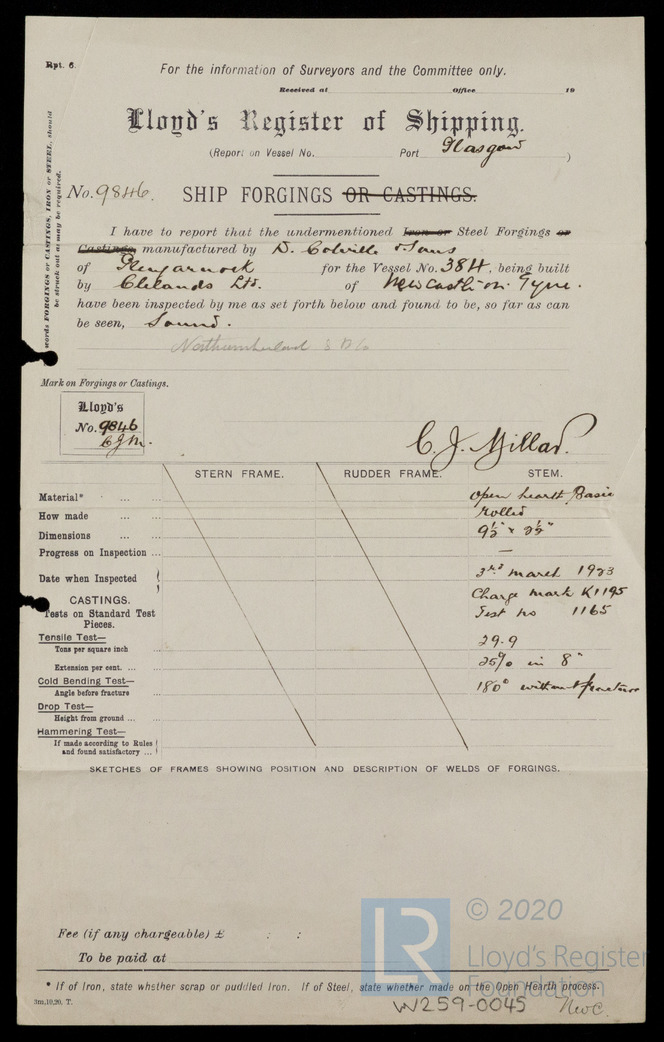 Rpt. 6.
For the information of Surveyors and the Committee only.
Received at Office 19
Lloyd's Register of Shipping.
(Report on Vessel No. Port Glasgow )
words FORGINGS or CASTINGS, IRON or STEEL, should
be struck out as may be required.
No. 9846. SHIP FORGINGS OR CASTINGS.
I have to report that the undermentioned Iron or Steel Forgings or
Castings, manufactured by D. Colville & Sons
of Glengarnock for the Vessel No. 384, being built
by Clelands Ltd. of Newcastle-on-Tyne.
have been inspected by me as set forth below and found to be, so far as can
be seen, Sound.
Northumberland S B Co
Mark on Forgings or Castings.
Lloyd's
No. 9846
CJM.
C. J. Millar.
STERN FRAME. RUDDER FRAME. STEM.
Material* ... ... Open hearth Basic
How made ... ... rolled
Dimensions ... ... 9½" x 2½"
Progress on Inspection ... —
Date when Inspected 3rd March 1923
CASTINGS. Charge mark K1195
Tests on Standard Test Test no 1165
Pieces.
Tensile Test—
Tons per square inch 29.9
Extension per cent. ... ... 25% in 8"
Cold Bending Test—
Angle before fracture 180° without fracture
Drop Test—
Height from ground ... ...
Hammering Test—
If made according to Rules
and found satisfactory ...
SKETCHES OF FRAMES SHOWING POSITION AND DESCRIPTION OF WELDS OF FORGINGS.
Fee (if any chargeable) £ : :
To be paid at
* If of Iron, state whether scrap or puddled Iron. If of Steel, state whether made on the Open Hearth process.
3m,10,20, T.
W259-0045 Nwc.
LR
© 2020
Lloyd's Register
Foundation